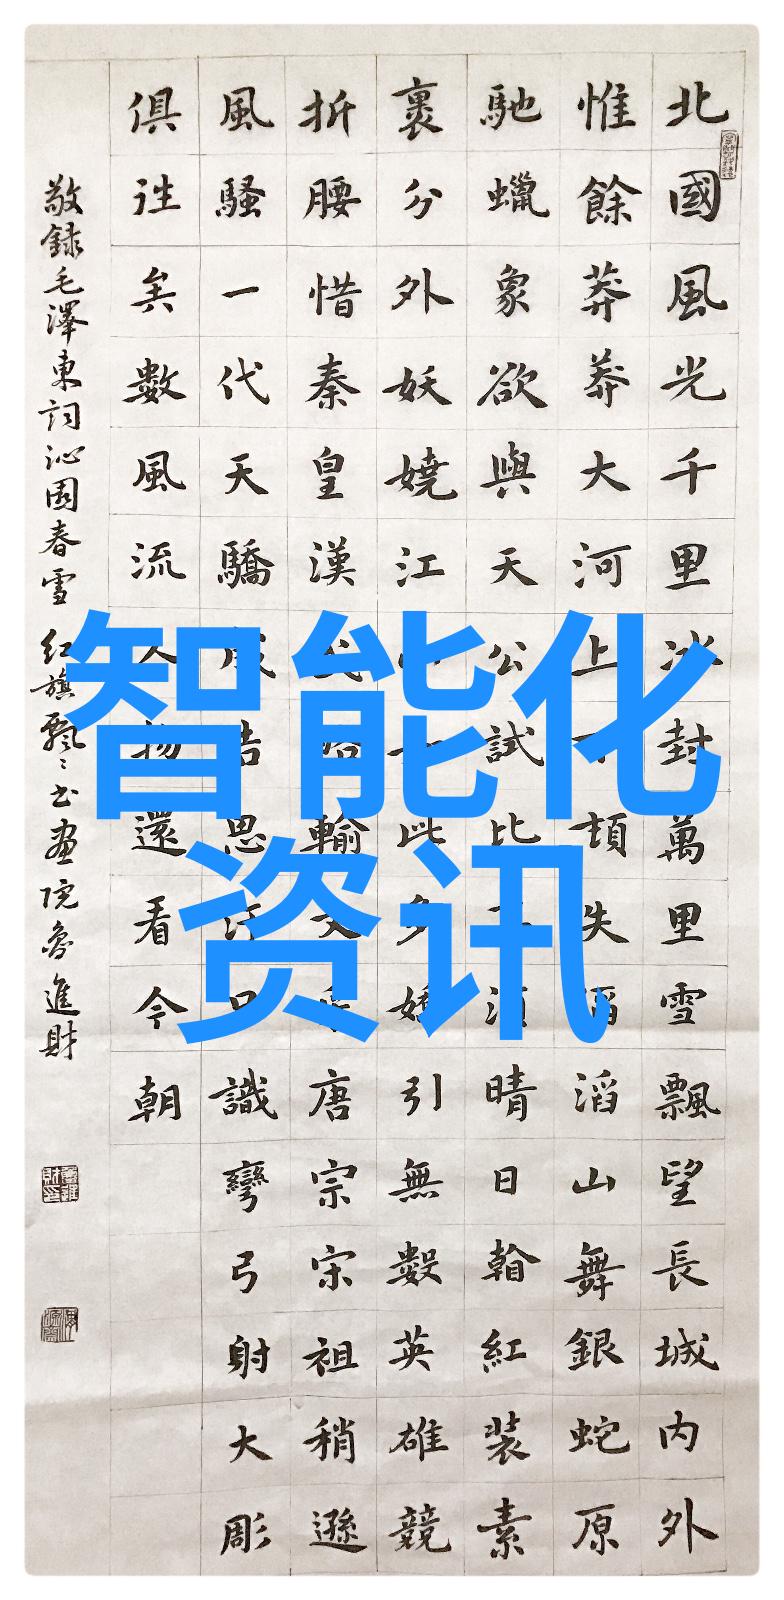 智能化
资讯
北國風光千里冰封萬里雪飄望長城内外
惟餘莽莽大河上下頓失滔滔山舞銀蛇原
馳蠟象欲與天公試比須晴日翰紅裝素
裹分外妖嬈江山此多嬌引無數英雄競
折腰惜秦皇漢武輸文采唐宗宋祖稍遜
風騷一代天驕成吉思汗只識彎弓射大彫
俱往矣數風流人物還看今朝
敬録毛澤東詞沁園春雪 紅旗飘々书画院魯進財